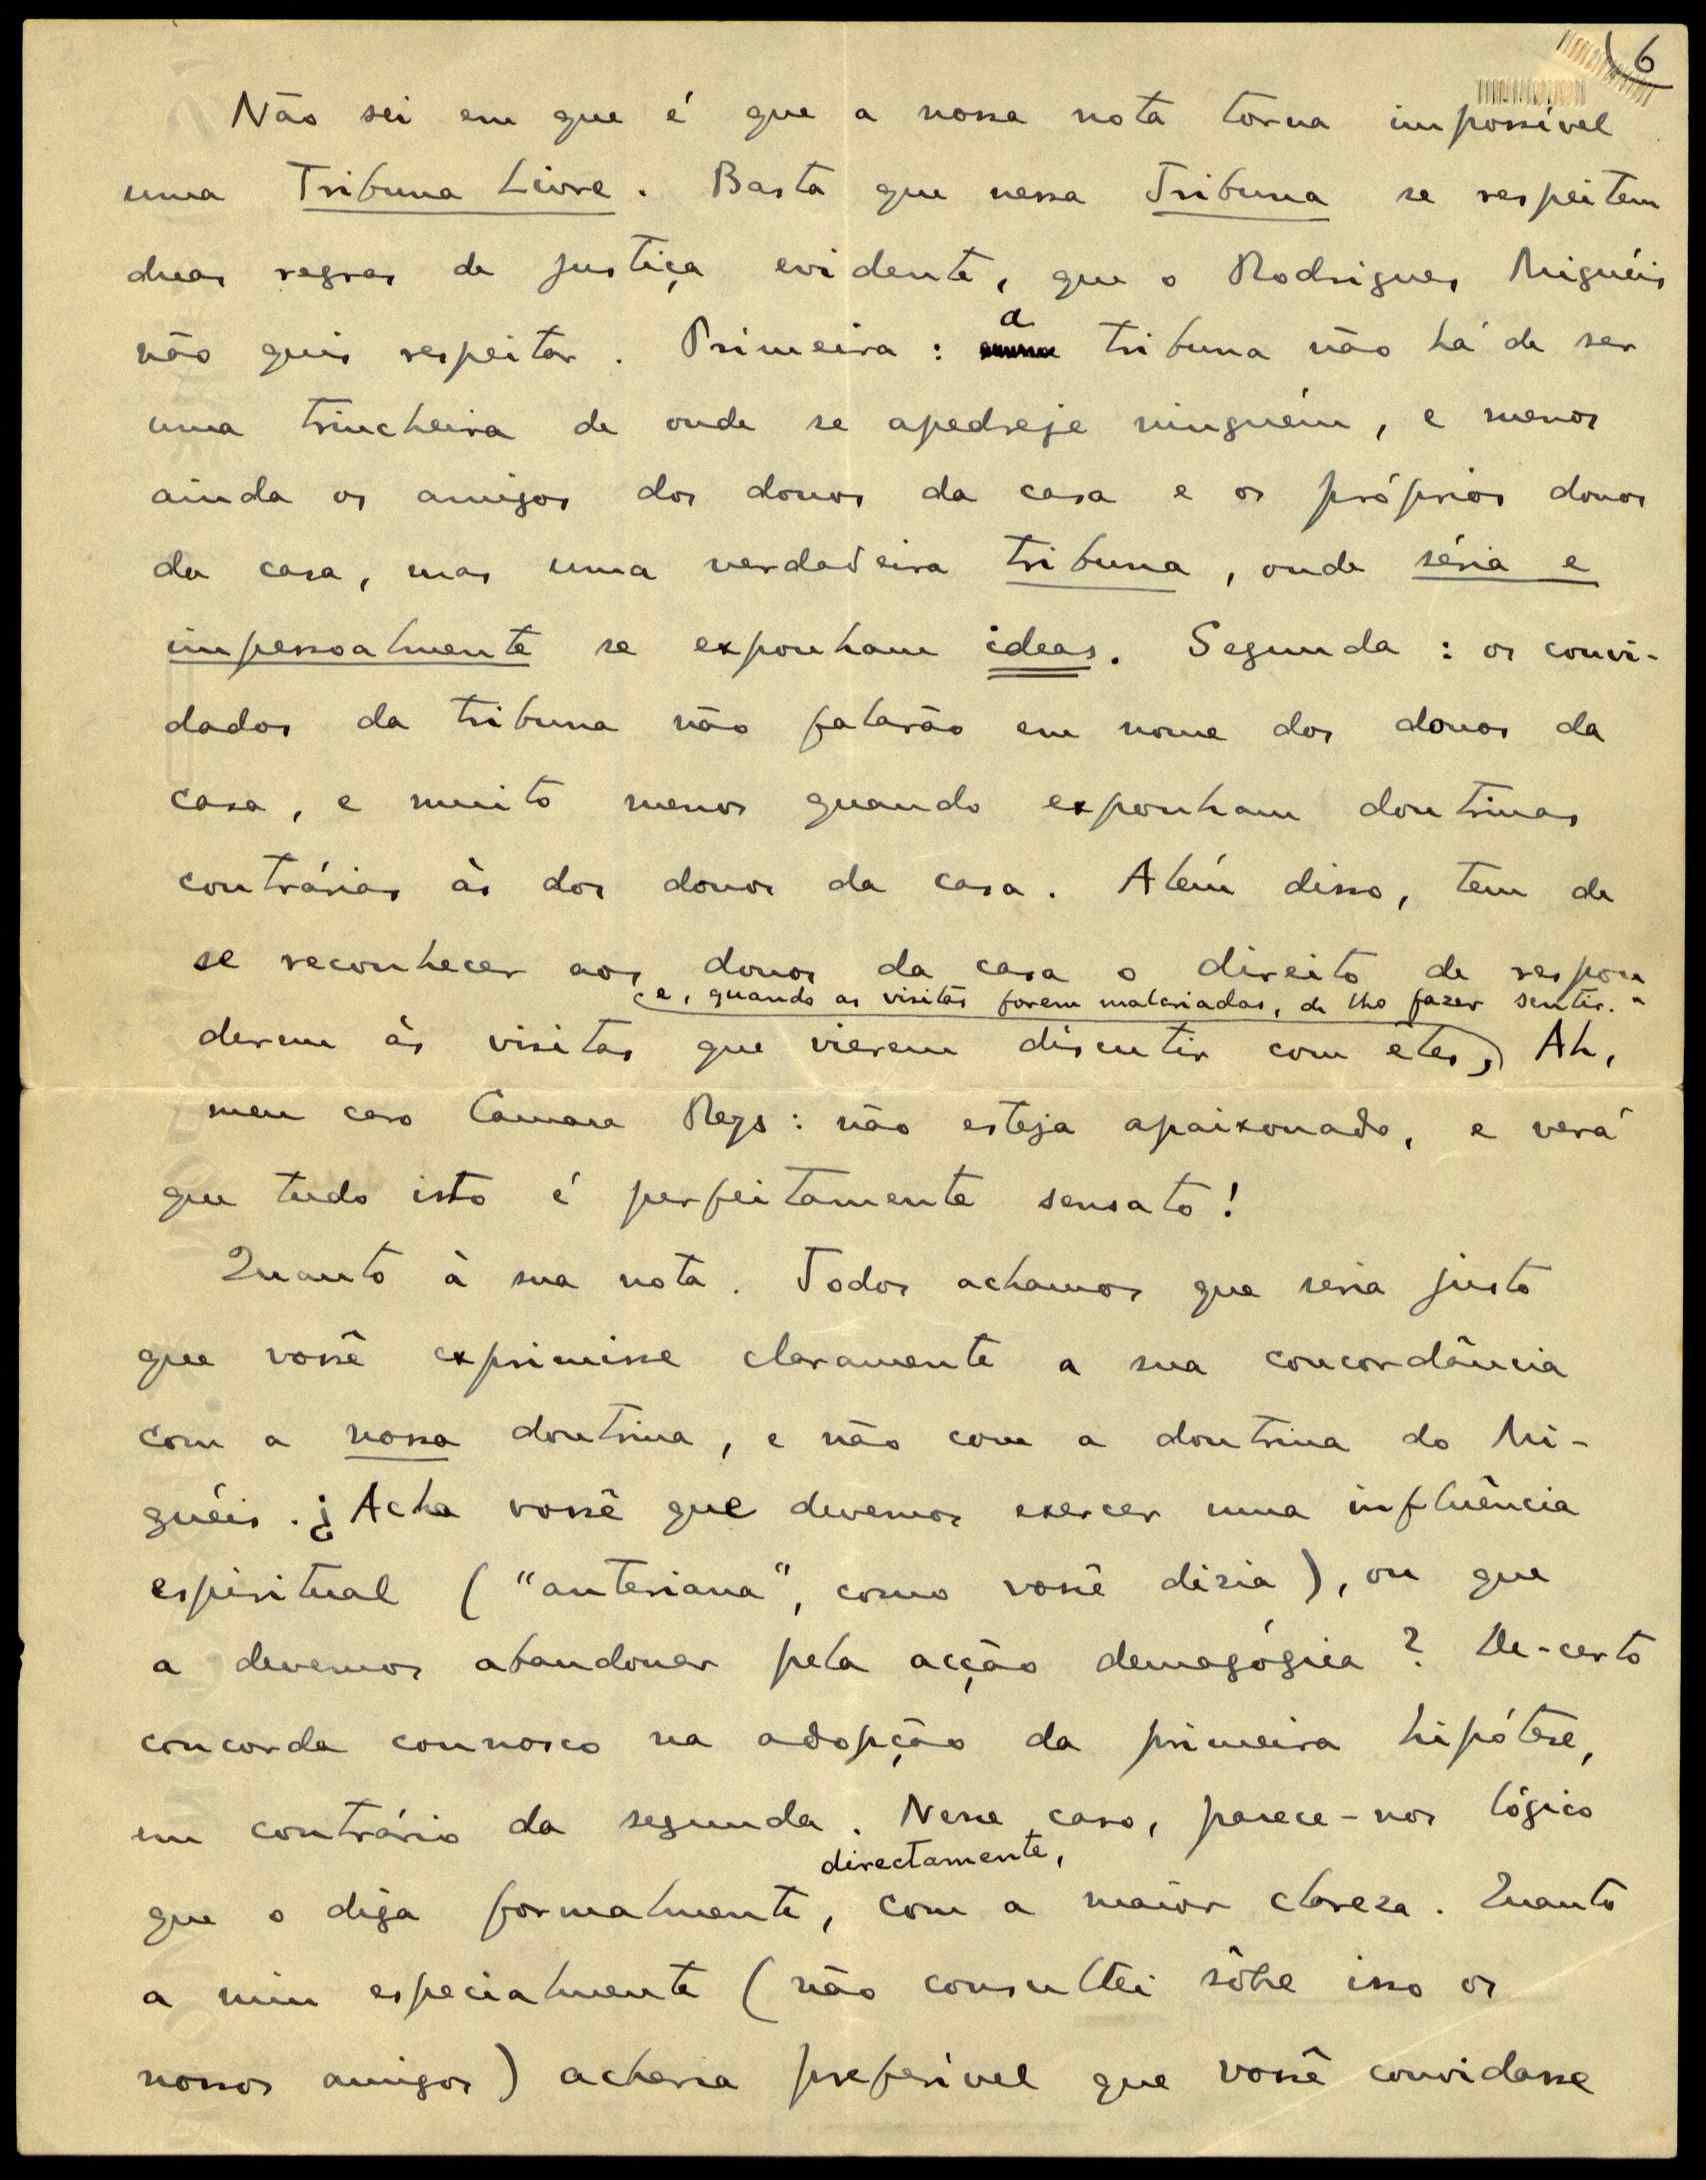 6
Não sei em que é que a nossa nota torna impossível
uma Tribuna Livre. Basta que nessa Tribuna se respeitem
duas regras de justiça evidente, que o Rodrigues Miguéis
não quis respeitar. Primeira: a tribuna não há de ser
uma trincheira de onde se apedreje ninguém, e menos
ainda os amigos dos donos da casa e os próprios donos
da casa, mas uma verdadeira tribuna, onde séria e
impessoalmente se exponham ideas. Segunda: os convi-
dados da tribuna não falarão em nome dos donos da
casa, e muito menos quando exponham doutrinas
contrárias às dos donos da casa. Além disso, tem de
se reconhecer aos donos da casa o direito de respon-
e, quando as visitas forem malcriadas, de lho fazer sentir.
derem às visitas que vierem discutir com êles, Ah,
meu caro Camara Reys: não esteja apaixonado, e verá
que tudo isto é perfeitamente sensato!
Quanto à sua nota. Todos achamos que seria justo
que vossê exprimisse claramente a sua concordância
com a nossa doutrina, e não com a doutrina do Mi-
guéis. ¿Acha vossê que devemos exercer uma influência
espiritual ("anteriana", como vossê dizia), ou que
a devemos abandonar pela acção demagógica? De-certo
concorda connosco na adopção da primeira hipótese,
em contrário da segunda. Nesse caso, parece-nos lógico
directamente,
que o diga formalmente, com a maior clareza. Quanto
a mim especialmente (não consultei sôbre isso os
nossos amigos) acharia preferível que vossê convidasse